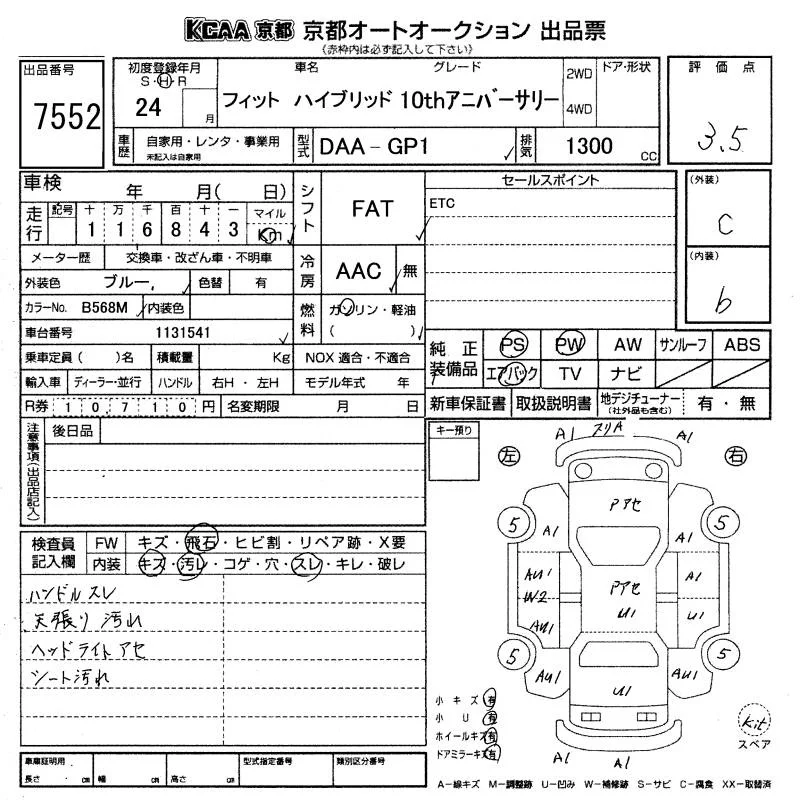 KCAA 京都 京都オートオークション 出品票
《赤枠内は必ず記入して下さい》
出品番号
7552
初度登録年月
S・H・R
24 月
車名 グレード
フィット ハイブリッド 10thアニバーサリー
2WD
4WD
ドア・形状
評価点
3.5
車歴
自家用・レンタ・事業用
未記入は自家用
型式
DAA-GP1
排気
1300 CC
車検 年 月( 日)
走行
記号 十 万 千 百 十 一 マイル
1 1 6 8 4 3 Km
メーター歴 交換車・改ざん車・不明車
外装色 ブルー 色替 有
カラーNo. B568M 内装色
車台番号 1131541
乗車定員( )名 積載量 Kg
輸入車 ディーラー・並行 ハンドル 右H・左H
R券 10,710円 名変期限 月 日
シフト
FAT
冷房
AAC 無
燃料
ガソリン・軽油
( )
NOX 適合・不適合
モデル年式 年
セールスポイント
ETC
(外装)
C
(内装)
b
純正装備品
PS PW AW サンルーフ ABS
エアバック TV ナビ
新車保証書 取扱説明書 地デジチューナー
(社外品も含む)
有・無
注意事項(出品店記入)
後日品
キー預り
検査員記入欄
FW キズ・飛石・ヒビ割・リペア跡・X要
内装 キズ・汚レ・コゲ・穴・スレ・キレ・破レ
ハンドルスレ
天張り汚れ
ヘッドライトアセ
シート汚れ
左 右
A1 スリA A1
Pアセ
5 5
A1 A1
AU1 Pアセ A1
W2 U1 U1
AU1
5 5
AU1 U1 AU1
A1 A1
小キズ 有
小U 有
ホイールキズ 有
ドアミラーキズ 有
kit
スペア
車庫証明用
長さ cm 幅 cm 高さ cm
型式指定番号
類別区分番号
A-線キズ M-調整跡 U-凹み W-補修跡 S-サビ C-腐食 XX-取替済